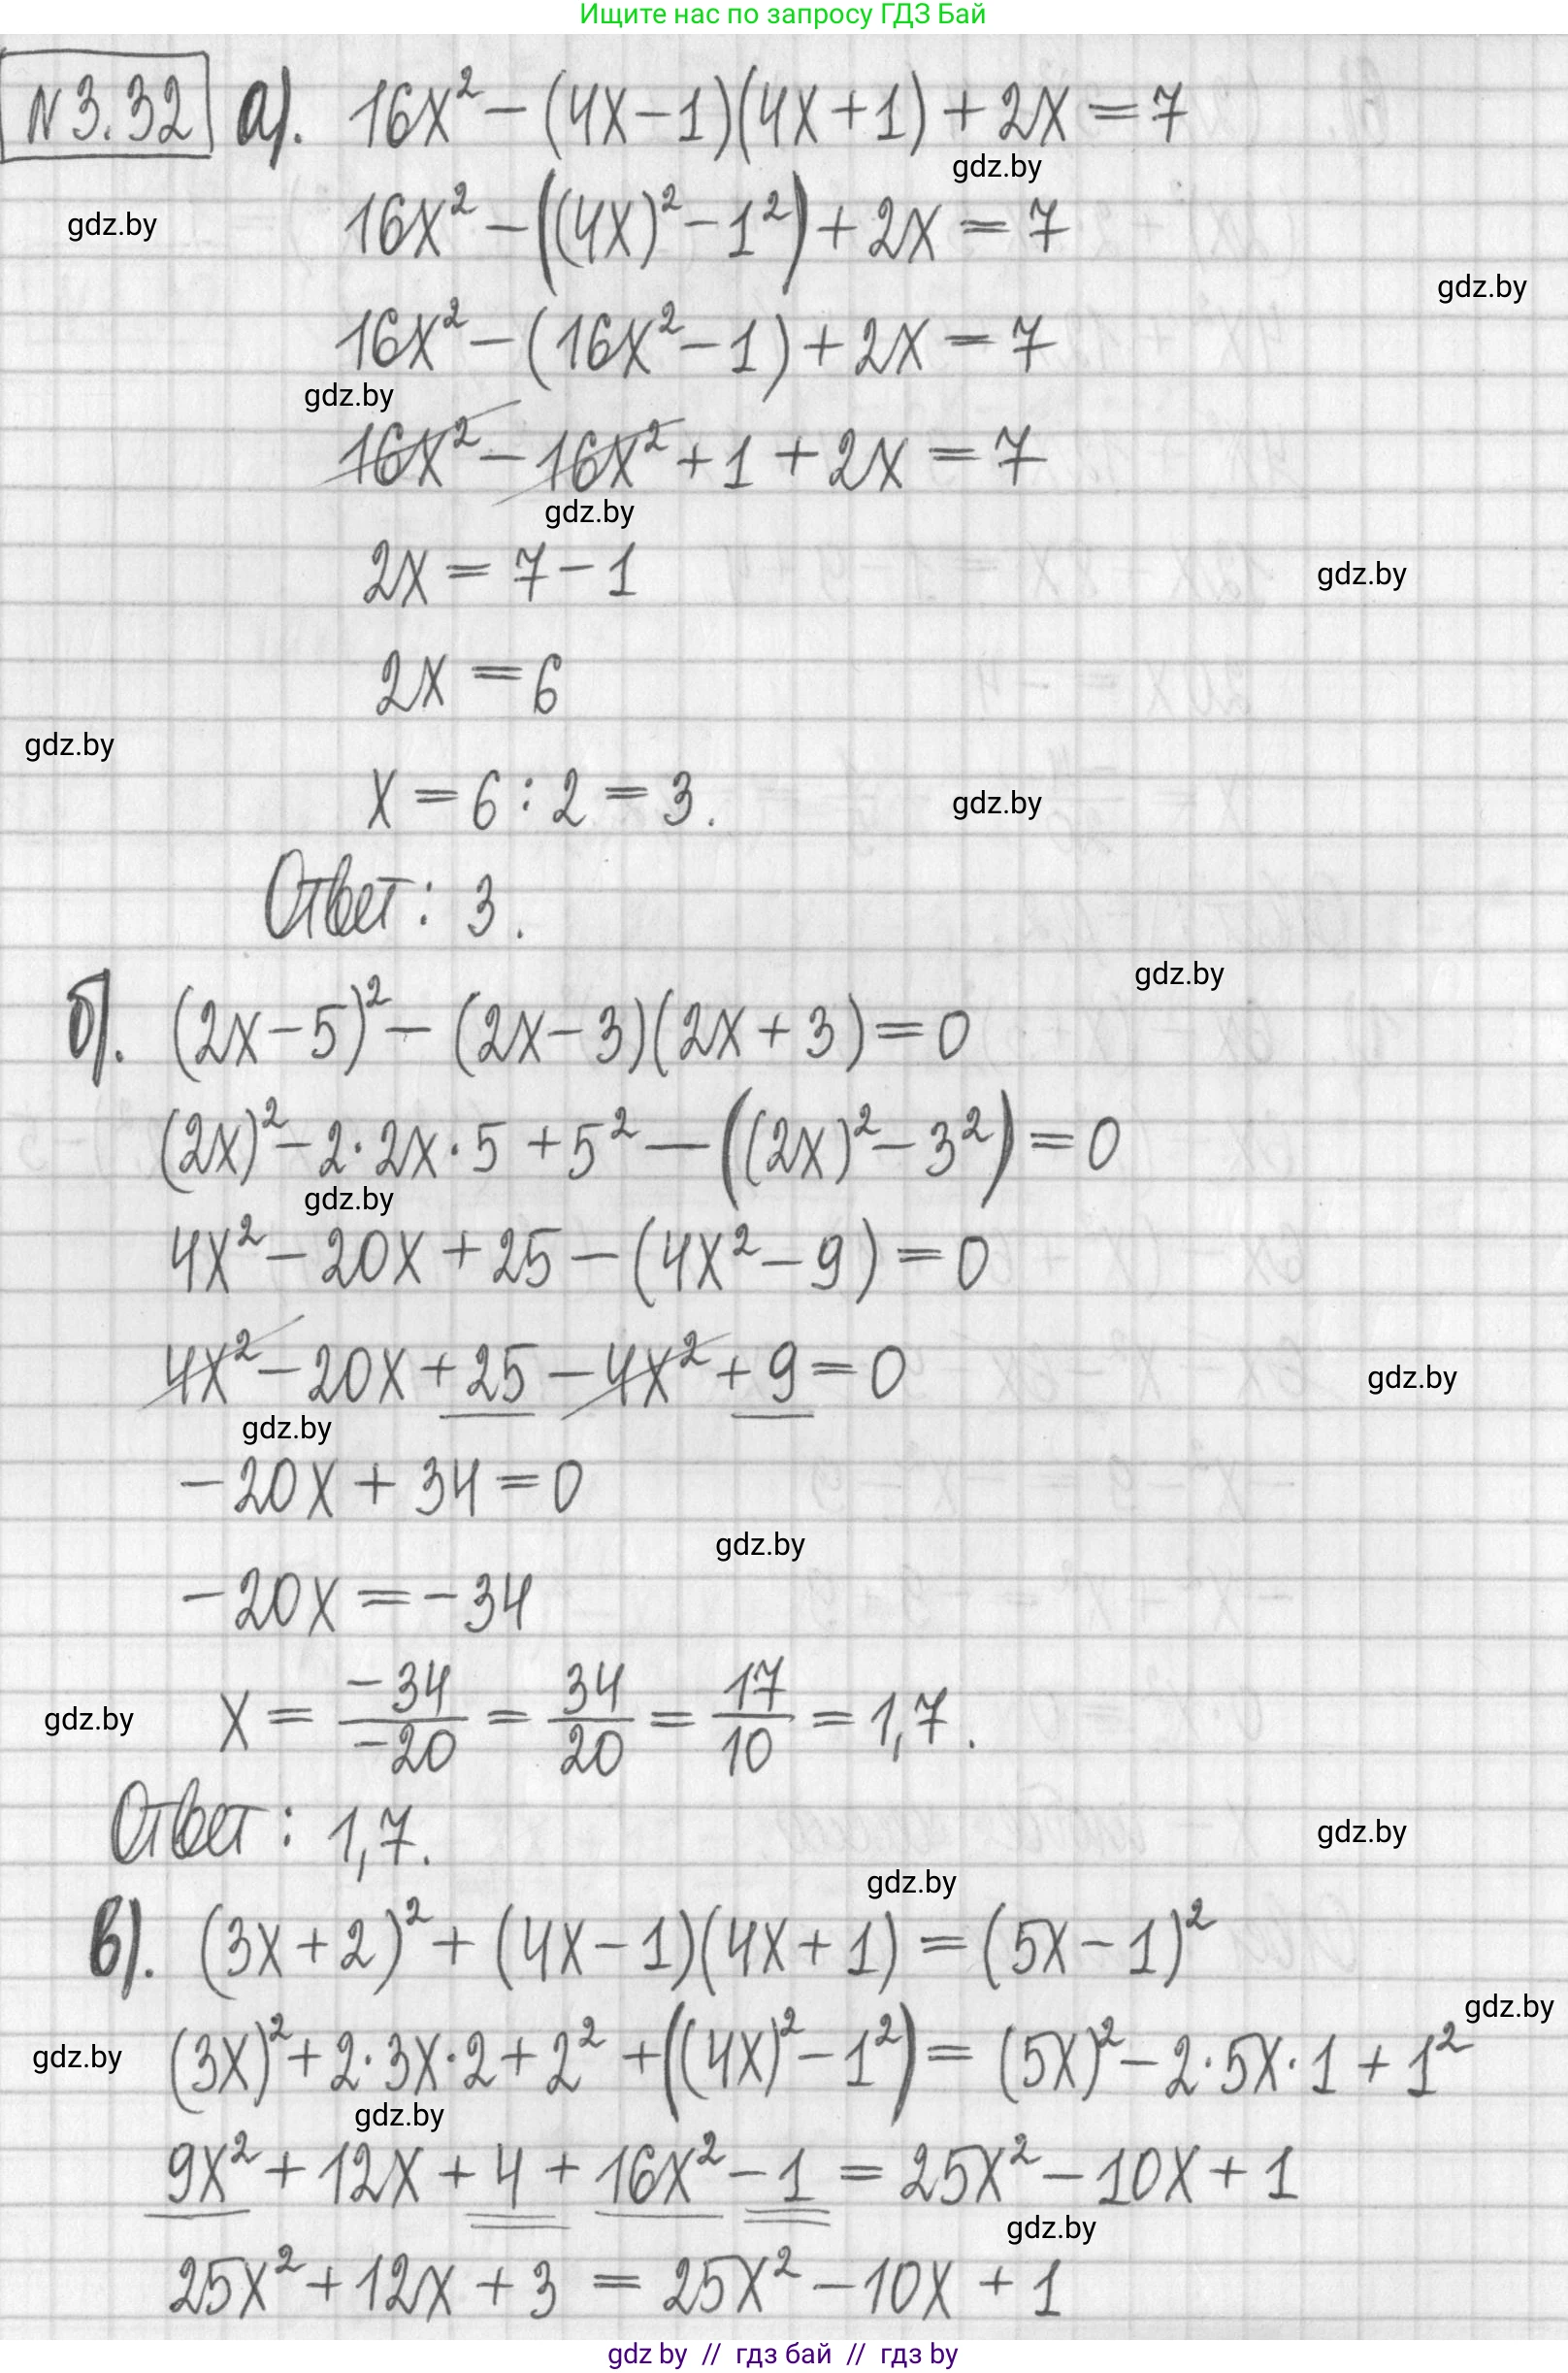 Ищите нас по запросу ГДЗ Бай
N3.32 а). 16x² - (4x-1)(4x+1) + 2x = 7
gdz.by
16x² - ((4x)² - 1²) + 2x = 7
gdz.by
gdz.by
16x² - (16x² - 1) + 2x = 7
gdz.by
16x² - 16x² + 1 + 2x = 7
gdz.by
2x = 7 - 1
gdz.by
2x = 6
gdz.by
x = 6 : 2 = 3.
gdz.by
Ответ: 3.
gdz.by
б). (2x-5)² - (2x-3)(2x+3) = 0
(2x)² - 2·2x·5 + 5² - ((2x)² - 3²) = 0
gdz.by
4x² - 20x + 25 - (4x² - 9) = 0
4x² - 20x + 25 - 4x² + 9 = 0
gdz.by
gdz.by
-20x + 34 = 0
gdz.by
-20x = -34
x = -34/-20 = 34/20 = 17/10 = 1,7.
gdz.by
Ответ: 1,7.
gdz.by
gdz.by
в). (3x+2)² + (4x-1)(4x+1) = (5x-1)²
gdz.by
(3x)² + 2·3x·2 + 2² + ((4x)² - 1²) = (5x)² - 2·5x·1 + 1²
gdz.by
gdz.by
9x² + 12x + 4 + 16x² - 1 = 25x² - 10x + 1
gdz.by
25x² + 12x + 3 = 25x² - 10x + 1
gdz by // гдз бай // гдз by